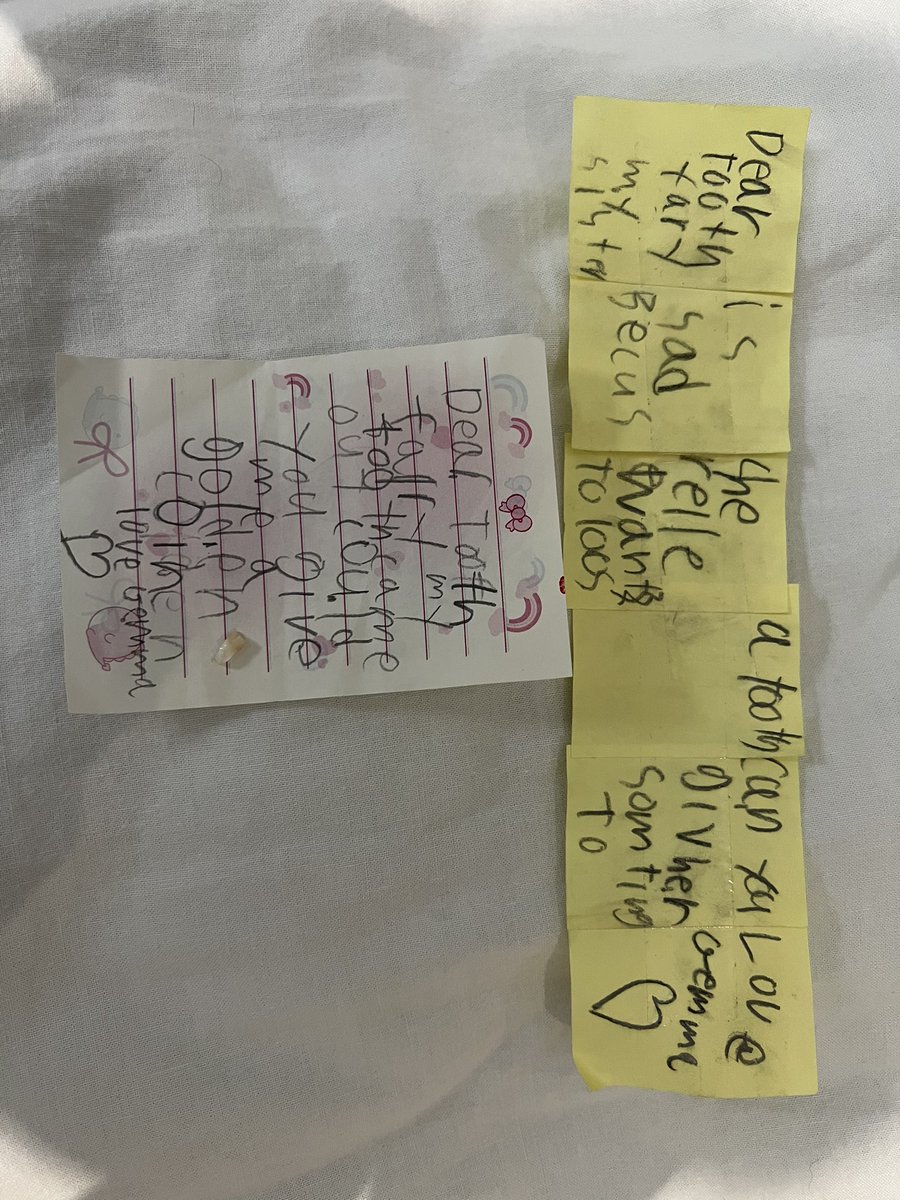 Dear
Tooth
fary
my
sistr
is
sad
Becus
she
relle
wants
to loos
a tooth
Can you
giv her
somting
To
Love
Gemma
Dear Toth
fairy my
tooth came
out could
you give
me a
golden
coine
love Gemma